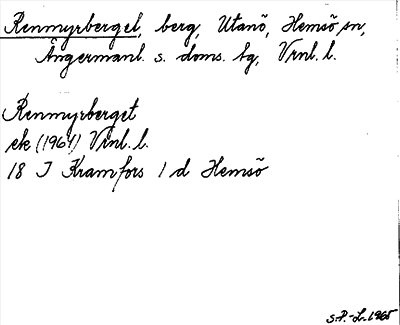 Renmyrberget, berg, Utanö, Hemsö sn,
Ångermanl. s. doms. tg, Vrnl. l.
Renmyrberget
ek (1964) Vrnl. l.
18 I Kramfors 1 d Hemsö
S.P.-L. 1965